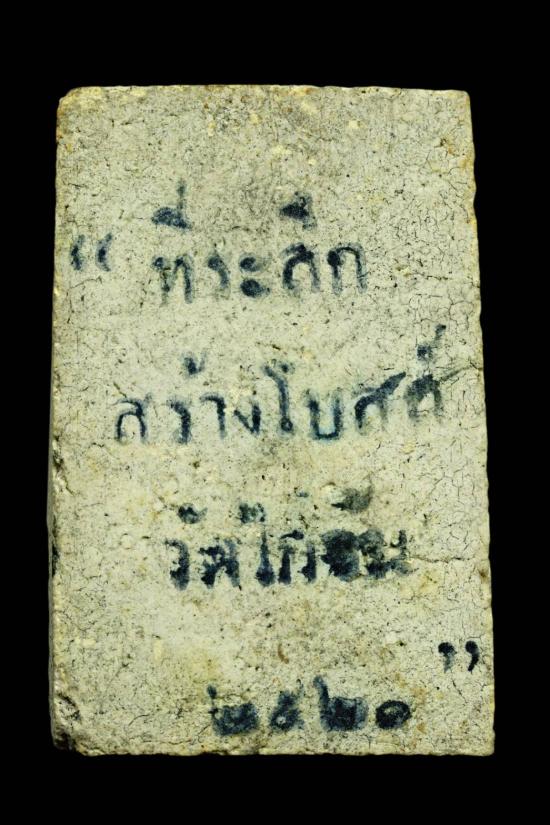 “ ที่ระลึก
สร้างโบสถ์
วัดไก่จ้น
”
๒๕๒๐